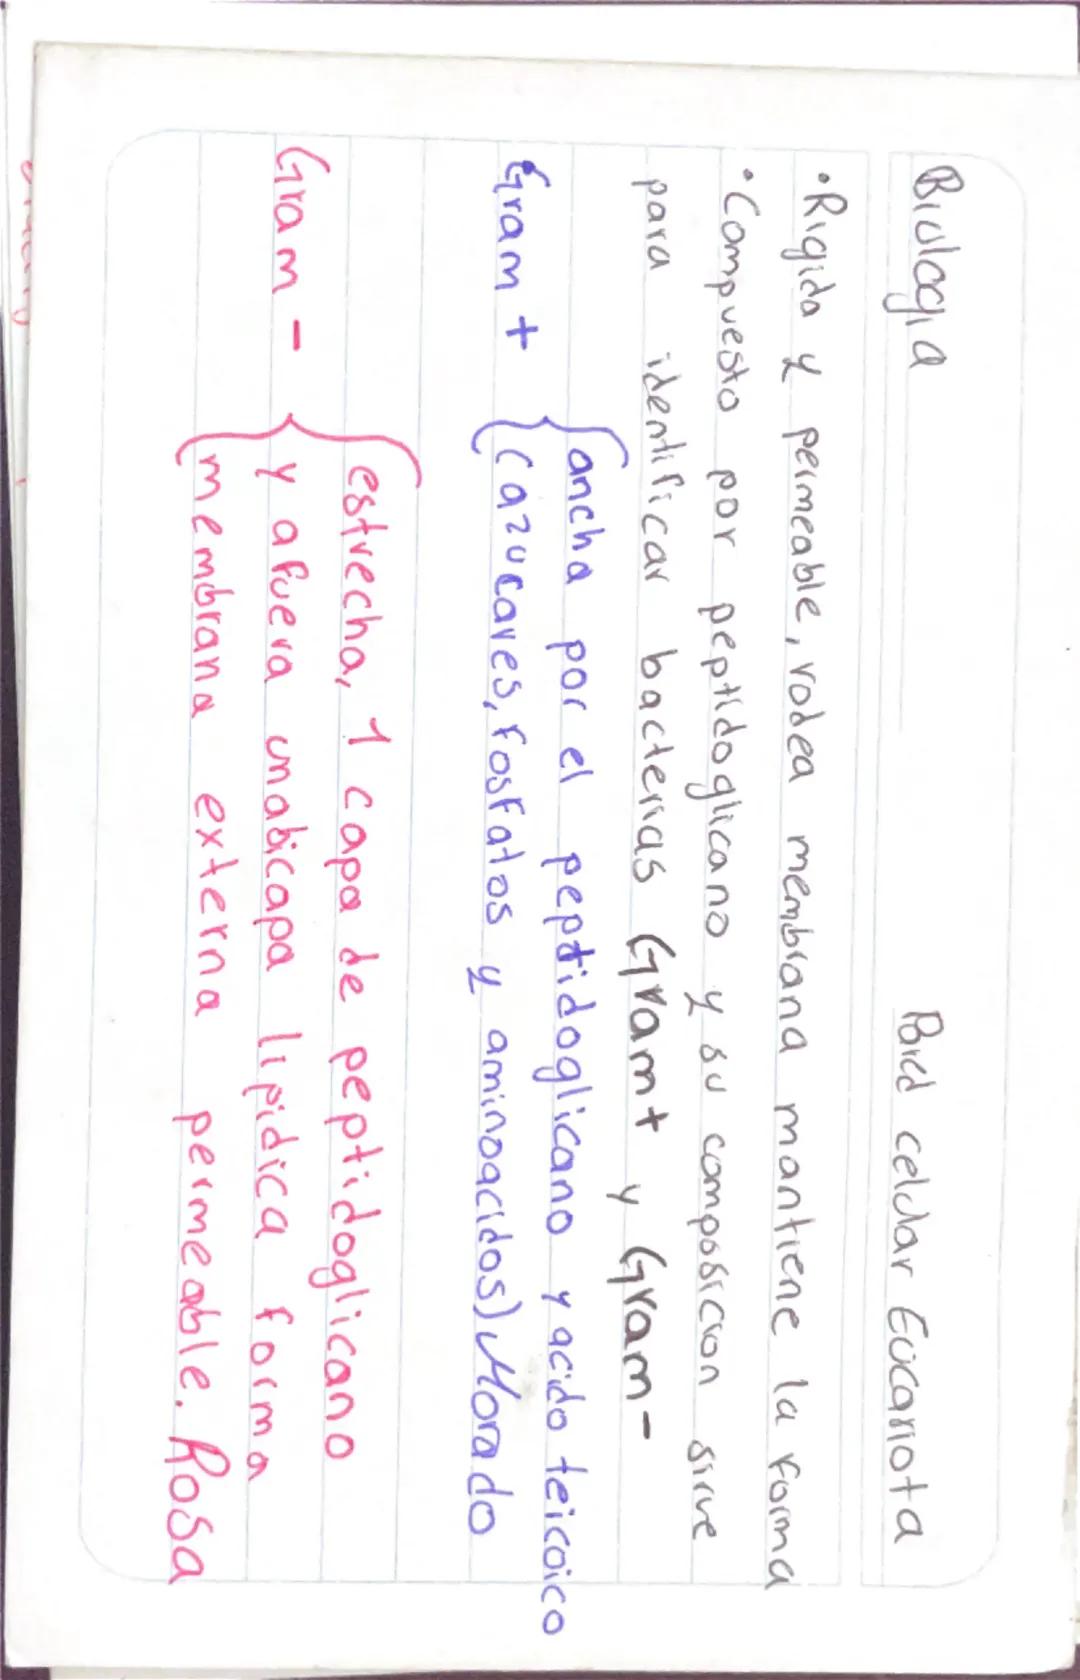 Biologia Pared celular Eucariota
• Rigida y permeable, rodea membrana mantiene la forma
• Compuesto por peptidoglicano y su composicion sirve
para identificar bacterias Gram+ y Gram-
Gram + { ancha por el peptidoglicano y acido teicoico
(azucares, fosfatos y aminoacidos) Morado
Gram - { estrecha, 1 capa de peptidoglicano
y afuera una bicapa lipidica forma
membrana externa permeable. Rosa